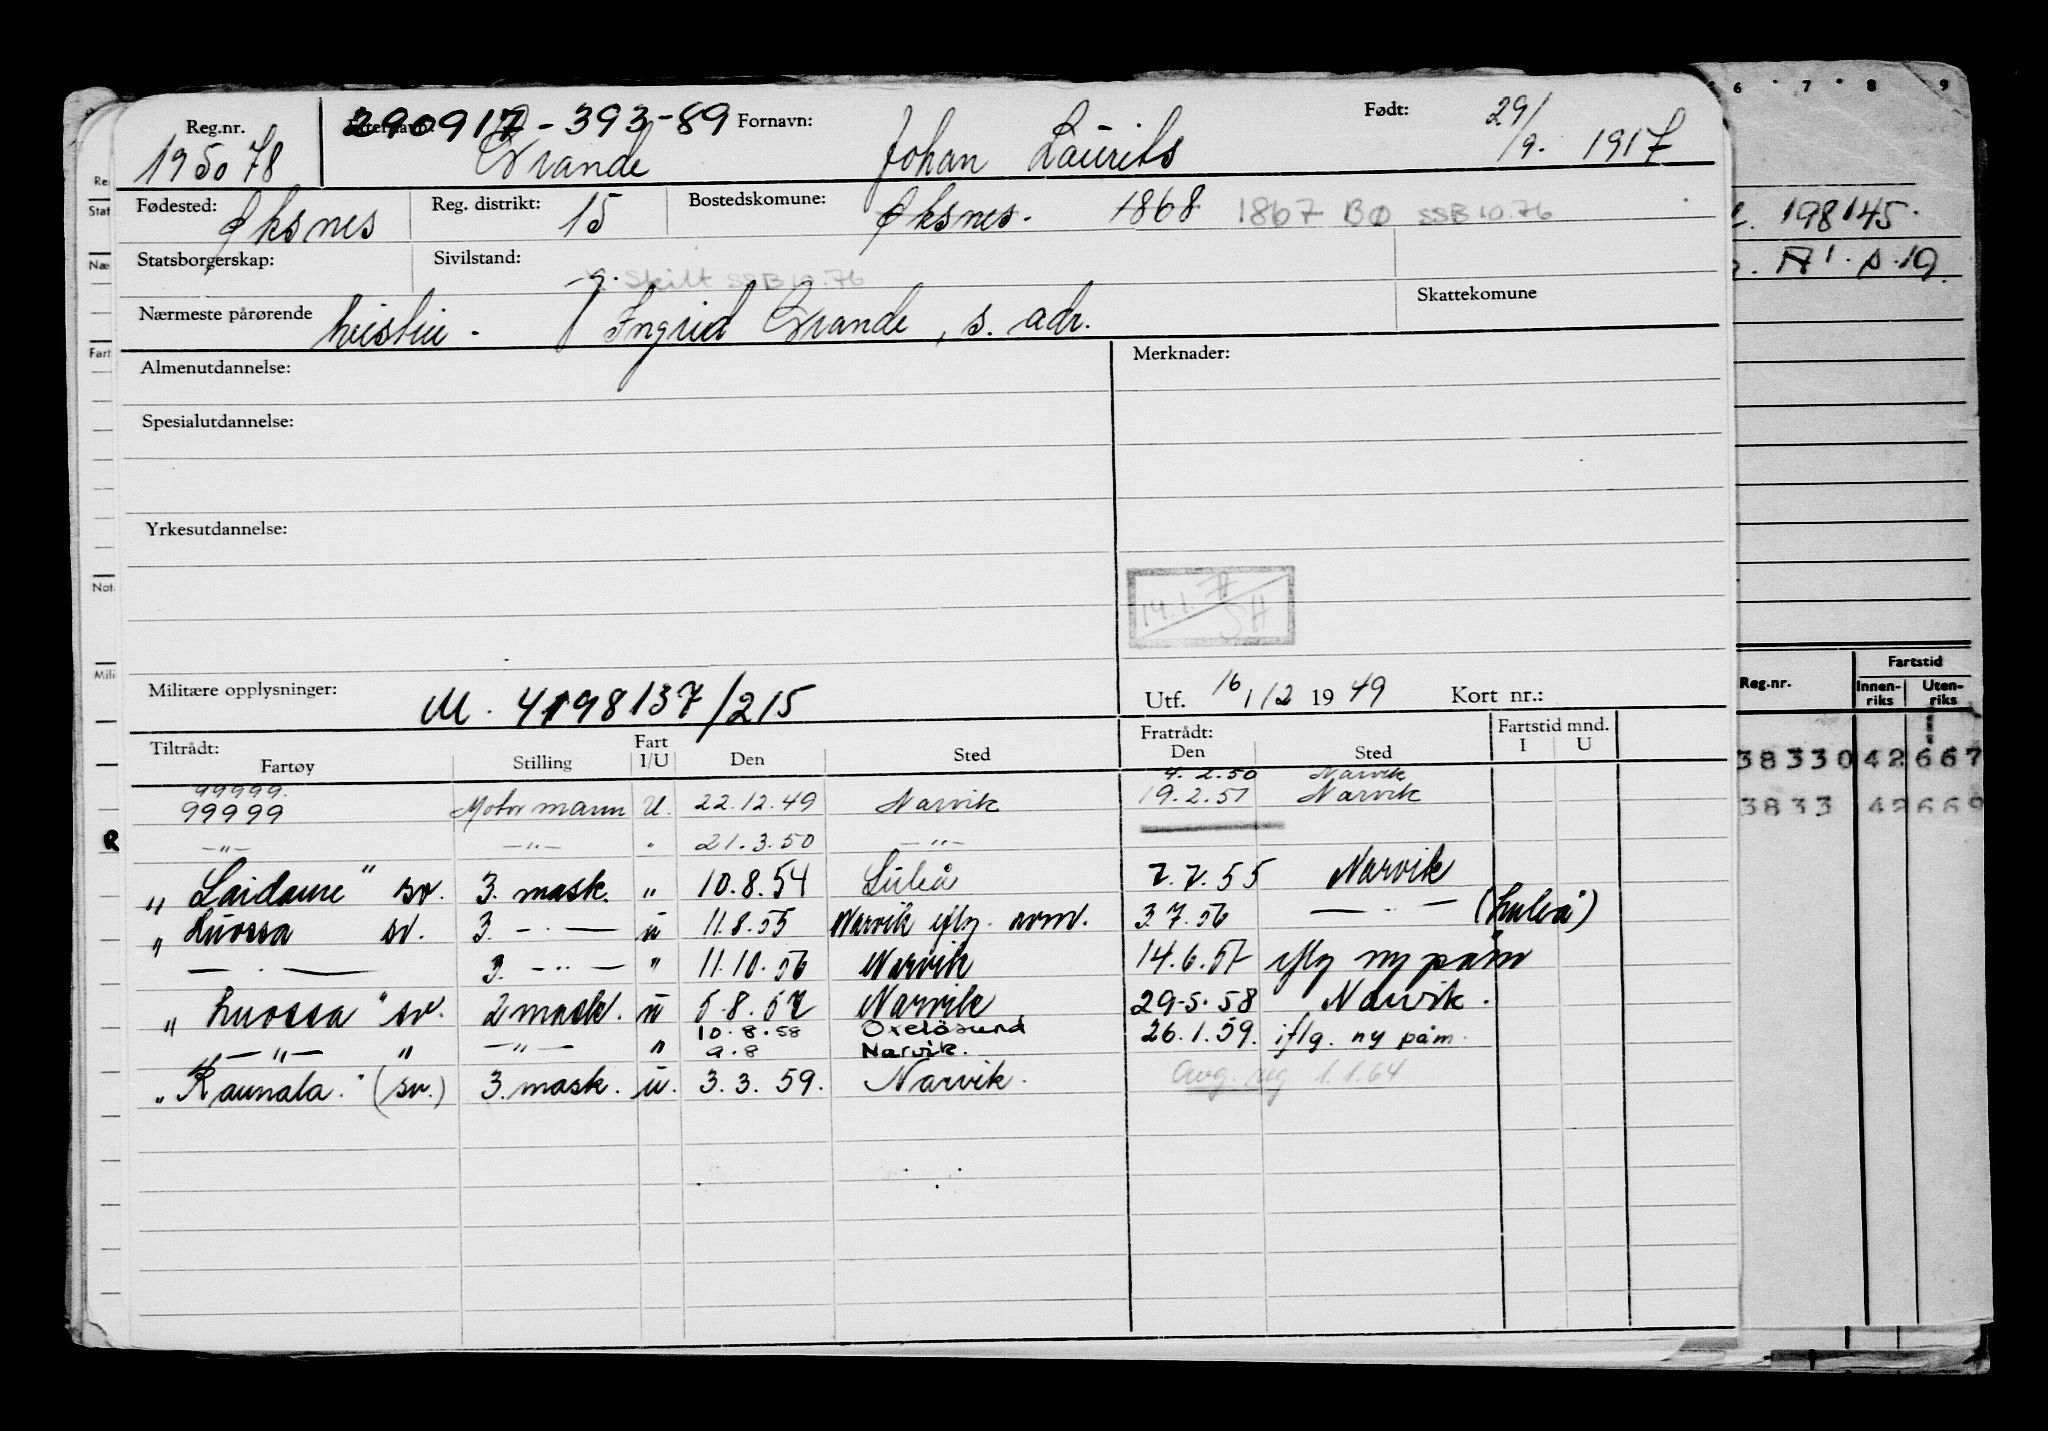 Reg.nr. Etternavn: 290917-393-89 Fornavn: Født: 29/
195078 Grande Johan Laurits /9. 1917
Fødested: Øksnes Reg. distrikt: 15 Bostedskomune: Øksnes. 1868 1867 BØ SSB 10.76
Statsborgerskap: Sivilstand: g. Skilt SSB 10.76
Nærmeste pårørende hustru - Ingrid Grande, s. adr. Skattekomune
Almenutdannelse: Merknader:
Spesialutdannelse:
Yrkesutdannelse:
14.1.77 SH
Militære opplysninger: M. 4198137/215 Utf. 16/12 1949 Kort nr.:
Tiltrådt: Fart Fratrådt: Fartstid mnd.
Fartøy Stilling I/U Den Sted Den Sted I U
99999. 9.2.50 Narvik
99999 Motormann U. 22.12.49 Narvik 19.2.51 Narvik
—"— —"— " 21.3.50 —"—
"Laidaure" sv. 3. mask. " 10.8.54 Luleå 7.7.55 Narvik
"Luossa sv. 3. —"— u 11.8.55 Narvik iflg. 3.7.56 —"— (Luleå)
—"— 3. —"— " 11.10.56 Narvik 14.6.57 iflg ny påm
"Luossa" sv. 2 mask. u 5.8.57 Narvik 29.5.58 Narvik.
—"— " —"— " 10.8.58 Oxelösund 26.1.59. iflg. ny påm.
9.8 Narvik.
"Raunala." (sv.) 3. mask. u. 3.3.59. Narvik. Avg. reg 1.1.64
6 7 8 9
198145.
A1. s. 19.
Fartstid
Reg.nr. Innen-riks Uten-riks
38330 42 667
3833 42 669
Re
Stat
Næ
Fart
Not
Mili
R